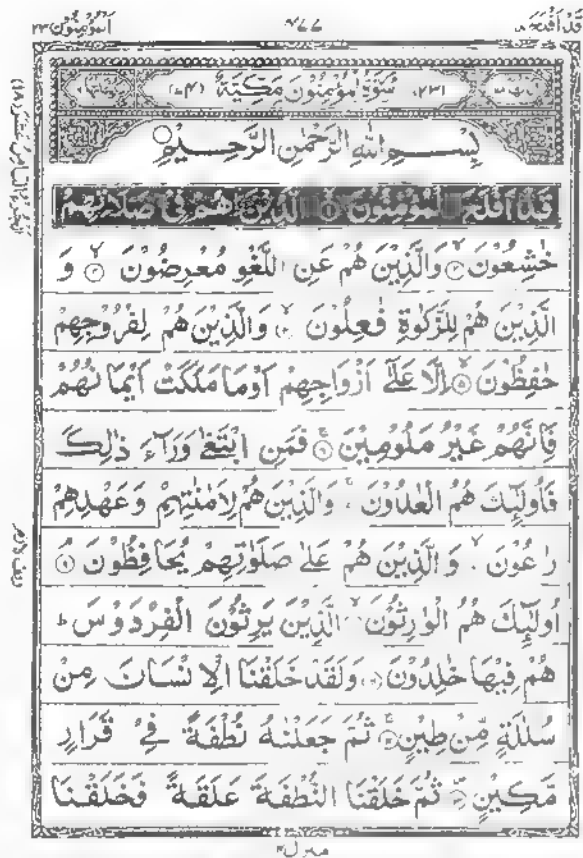 قَدْ اَفْلَحَ ۱۸ ۴۷۷ اَلْمُؤْمِنُوْن ۲۳
(۲۳) سُوْرَةُ الْمُؤْمِنُوْنَ مَكِّيَّةٌ (۷۴)
بِسْمِ اللّٰهِ الرَّحْمٰنِ الرَّحِيْمِ
قَدْ اَفْلَحَ الْمُؤْمِنُوْنَ ۱ الَّذِيْنَ هُمْ فِیْ صَلَاتِهِمْ
خٰشِعُوْنَ ۲ وَالَّذِيْنَ هُمْ عَنِ اللَّغْوِ مُعْرِضُوْنَ ۳ وَ
الَّذِيْنَ هُمْ لِلزَّكٰوةِ فٰعِلُوْنَ ۴ وَالَّذِيْنَ هُمْ لِفُرُوْجِهِمْ
حٰفِظُوْنَ ۵ اِلَّا عَلٰٓى اَزْوَاجِهِمْ اَوْ مَا مَلَكَتْ اَيْمَانُهُمْ
فَاِنَّهُمْ غَيْرُ مَلُوْمِيْنَ ۶ فَمَنِ ابْتَغٰى وَرَآءَ ذٰلِكَ
فَاُولٰٓئِكَ هُمُ الْعٰدُوْنَ وَالَّذِيْنَ هُمْ لِاَمٰنٰتِهِمْ وَعَهْدِهِمْ
رٰعُوْنَ وَالَّذِيْنَ هُمْ عَلٰى صَلَوٰتِهِمْ يُحَافِظُوْنَ ۹
اُولٰٓئِكَ هُمُ الْوٰرِثُوْنَ الَّذِيْنَ يَرِثُوْنَ الْفِرْدَوْسَ ط
هُمْ فِيْهَا خٰلِدُوْنَ وَلَقَدْ خَلَقْنَا الْاِنْسَانَ مِنْ
سُلٰلَةٍ مِّنْ طِيْنٍ ۱۲ ثُمَّ جَعَلْنٰهُ نُطْفَةً فِیْ قَرَارٍ
مَّكِيْنٍ ثُمَّ خَلَقْنَا النُّطْفَةَ عَلَقَةً فَخَلَقْنَا
منزل ۴